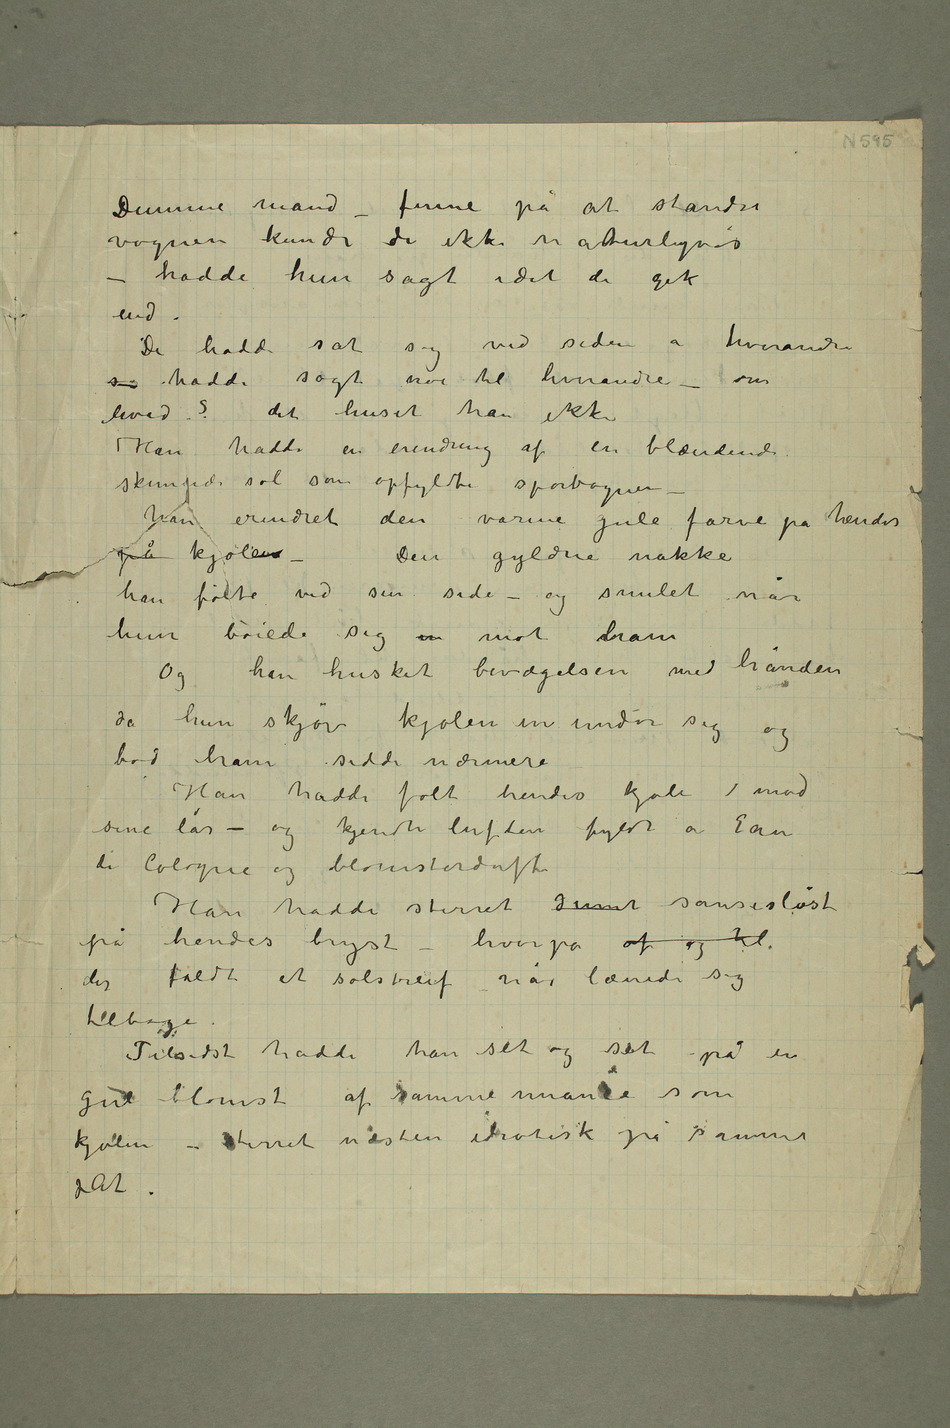 N 595
Dumme mand – finne på at standse
vognen kunde de ikke naturligvis
– hadde hun sagt idet de gik
ind.
De hadde sat sig ved siden a hverandre
så hadde sagt noe til hverandre – om
hvad? det huset han ikke
Han hadde en erendring af en blændende
skinnende sol som opfyldte sporvognen –
han erindret den varme gule farve på hendes
på kjolens – Den gyldne nakke
han følte ved sin side – og smilet når
hun böiede sig in mot ham
Og han husket bevægelsen med hånden
da hun skjøv kjolen in under sig og
bød ham sidde nærmere
Han hadde følt hendes kjole mod
sine lår – og kjendte luften fyldt a Eau
de Cologne og blomsterduft
Han hadde stirret dumt sanseslöst
på hendes bryst – hvorpå af og til
der faldt et solstreif når lænede sig
tilbage.
Tilsidst hadde han set og set på en
gul blomst af samme nuance som
kjolen – stirret næsten idiotisk på samme
plet.